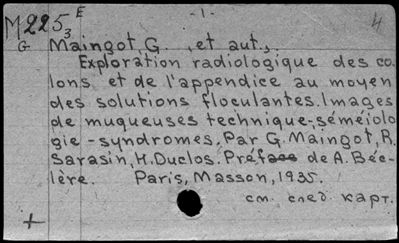 -1-
M225 E
3
4
G
Maingot, G. , et aut.,
Exploration radiologique des co-
lons et de l'appendice au moyen
des solutions floculantes. Images
de muqueuses technique-séméiolo
gie-syndromes. Par G. Maingot, R.
Sarasin, H. Duclos. Préface de A. Béc-
lère. Paris, Masson, 1935.
см. след. карт.
+